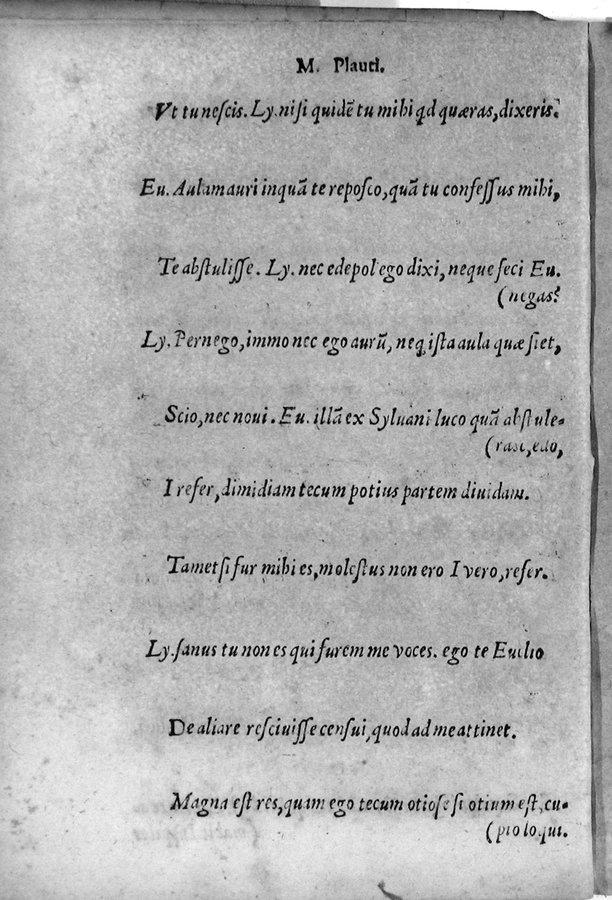 M. Plauti.
Vt tu neſcis. Ly. niſi quidẽ tu mihi qd quæras, dixeris.
Eu. Aulam auri inquã te repoſco, quã tu confeſſus mihi,
Te abſtuliſſe. Ly. nec edepol ego dixi, neque feci Eu.
(negas?
Ly. Pernego, immo nec ego aurũ, neq; iſta aula quæ ſiet,
Scio, nec noui. Eu. illã ex Syluani luco quã abſtule-
(ras, cedo,
I refer, dimidiam tecum potius partem diuidam.
Tametſi fur mihi es, moleſtus non ero I vero, refer.
Ly. ſanus tu non es qui furem me voces. ego te Euclio
De alia re reſciuiſſe cenſui, quod ad me attinet.
Magna eſt res, quam ego tecum otioſe ſi otium eſt, cu-
(pio loqui.